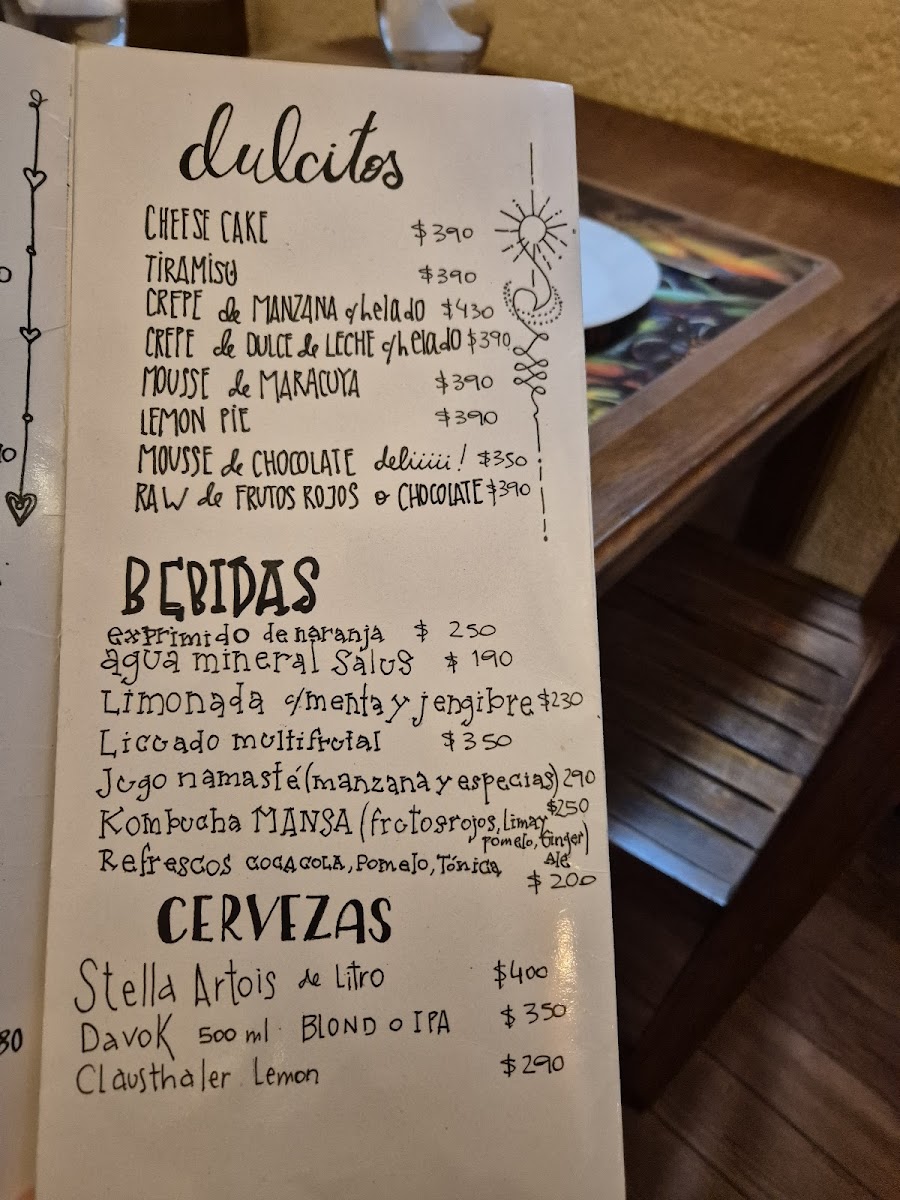 dulcitos
CHEESE CAKE $390
TIRAMISU $390
CREPE de MANZANA c/helado $430
CREPE de DULCE de LECHE c/helado $390
MOUSSE de MARACUYA $390
LEMON PIE $390
MOUSSE de CHOCOLATE deliiiii! $350
RAW de FRUTOS ROJOS o CHOCOLATE $390
BEBIDAS
exprimido de naranja $ 250
agua mineral Salus $ 190
Limonada c/menta y jengibre $230
Licuado multifrutal $350
Jugo namasté (manzana y especias) 290
Kombucha MANSA (frutos rojos, Lima y $250
pomelo, Ginger)
Refrescos COCACOLA, Pomelo, Tónica, Ale
$ 200
CERVEZAS
Stella Artois de Litro $400
Davok 500 ml. BLOND o IPA $350
Clausthaler Lemon $290
80